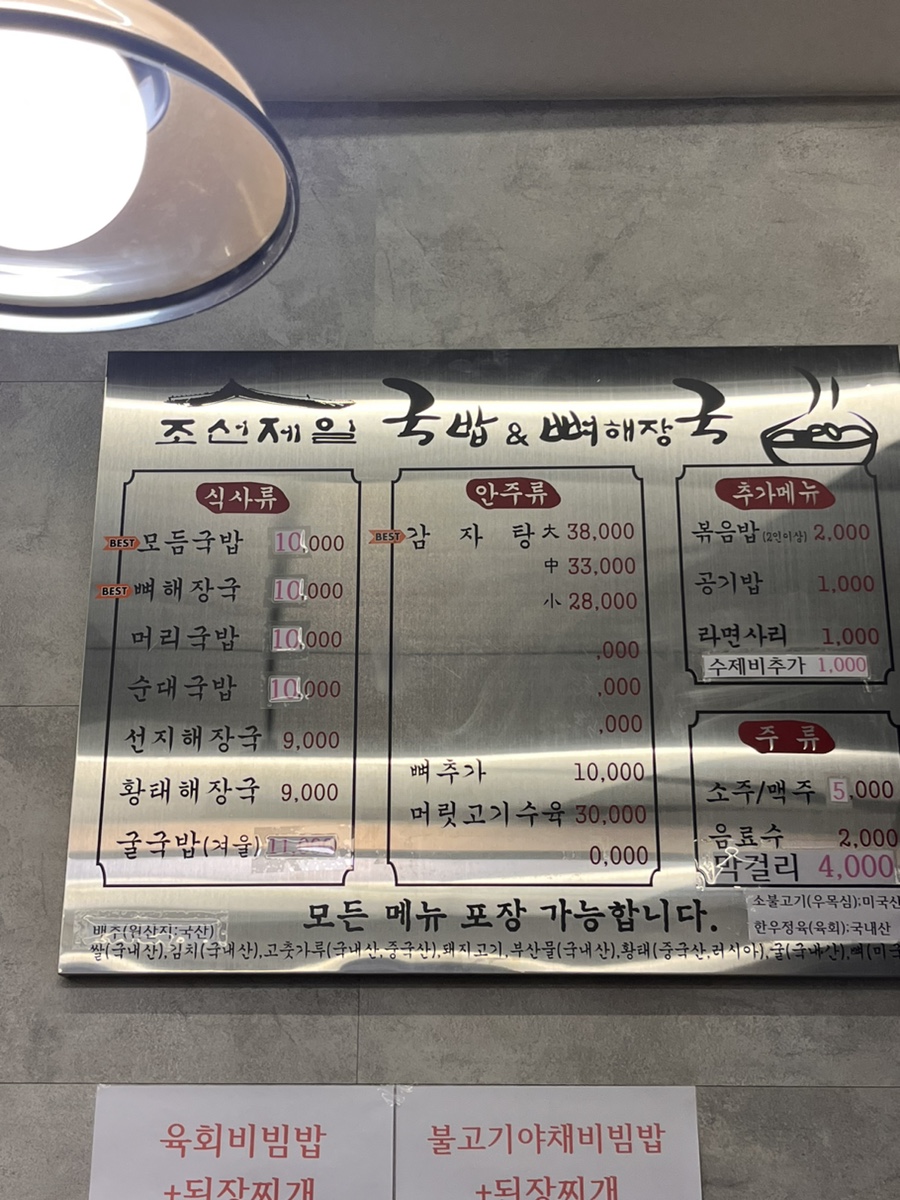 조선제일 국밥 & 뼈해장국
식사류
BEST 모듬국밥 10,000
BEST 뼈해장국 10,000
머리국밥 10,000
순대국밥 10,000
선지해장국 9,000
황태해장국 9,000
굴국밥(겨울) 11,000
안주류
BEST 감 자 탕 大 38,000
中 33,000
小 28,000
,000
,000
,000
뼈추가 10,000
머릿고기수육 30,000
0,000
추가메뉴
볶음밥(2인이상) 2,000
공기밥 1,000
라면사리 1,000
수제비추가 1,000
주 류
소주/맥주 5,000
음료수 2,000
막걸리 4,000
모든 메뉴 포장 가능합니다.
소불고기(우목심):미국산
한우정육(육회):국내산
배추(원산지:국산)
쌀(국내산),김치(국내산),고춧가루(국내산,중국산),돼지고기,부산물(국내산),황태(중국산,러시아),굴(국내산),뼈(미국
육회비빔밥
+된장찌개
불고기야채비빔밥
+된장찌개